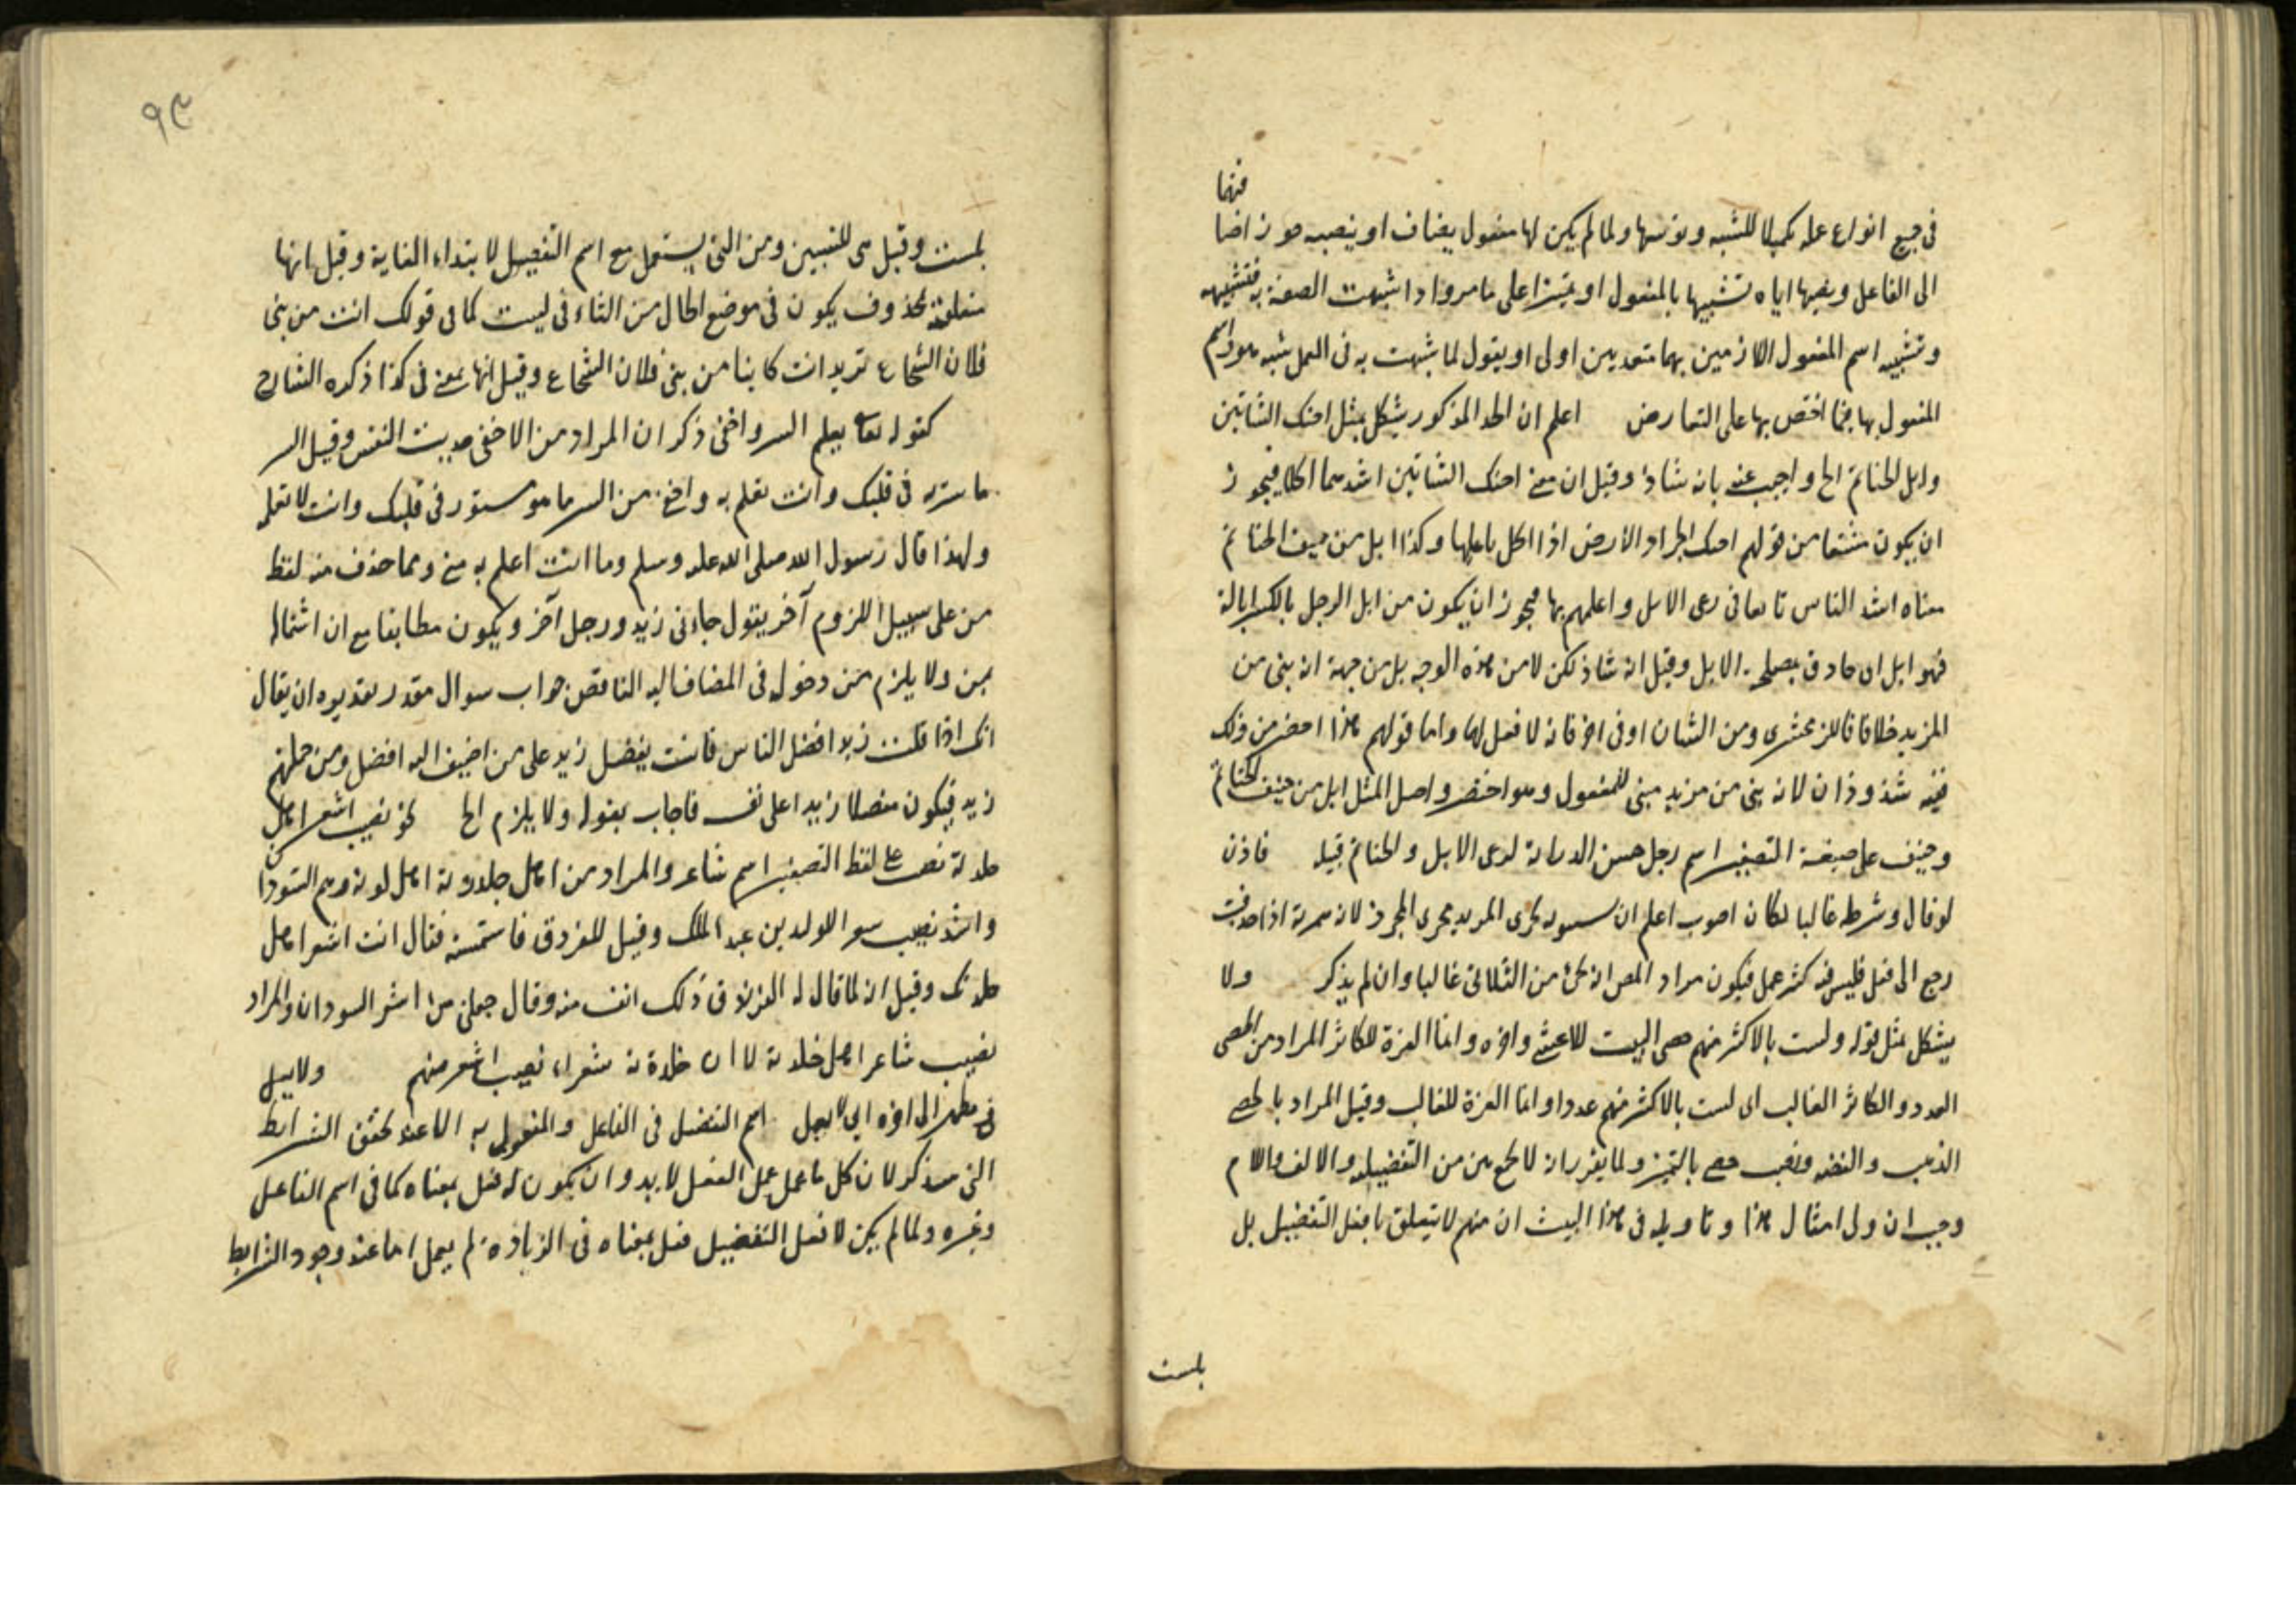 فيهما
في جميع انواع عمله تكميلا للشبه ولما لم يكن لها مفعول يضاف او ينصبه جوز اضا
الى الفاعل ونصبها اياه تشبيها بالمفعول او تميزا على ما مر واذا اشبهت الصفة به فتشبيه
وتشبيه اسم المفعول اللازمين بهما متعديين اولى او يقول لما شبهت به في العمل شبه هو واسم
المفعول بها فيما اختص بها على التعارض اعلم ان الحد المذكور يشكل بمثل احنك الشاتين
وابل الحناتم الخ واجيب عنه بانه شاذ وقيل ان معنى احنك الشاتين اشدهما اكلا فيجوز
ان يكون مشتقا من قولهم احنك الجراد الارض اذا اكل ما عليها وكذا ابل من حنيف الحناتم
معناه اشد الناس تانقا في رعى الابل واعلمهم بها فيجوز ان يكون من ابل الرجل بالكسر ابالة
فهو ابل اى حاذق بمصلحة الابل وقيل انه شاذ لكن لا من هذه الوجه بل من جهة انه بنى من
المزيد خلافا للزمخشرى ومن الشان او في اخر فانه لا فعل لها واما قولهم هذا اخصر من ذلك
ففيه شذوذان لانه بنى من مزيد مبنى للمفعول وهو اختصر واصل المثل ابل من حنيف الحناتم
وحنيف على صيغة التصغير اسم رجل حسن الدراية لرعى الابل والحناتم قبيلة فاذن
لو قال وشرطه غالبا لكان اصوب اعلم ان سيبويه يجرى المزيد مجرى المجرد لان همزته اذا حذفت
رجع الى فعل فليس فيه كثر عمل فيكون مراد المص انه يجئ من الثلاثى غالبا وان لم يذكر ولا
يشكل بمثل قوله ولست بالاكثر منهم حصى البيت للاعشى واخره وانما العزة للكاثر المراد من الحصى
العدد والكاثر الغالب اى لست بالاكثر منهم عددا وانما العزة للغالب وقيل المراد بالحصى
الذهب والفضة ونصب حصى بالتميز ولما يقرر انه لا يجمع بين من التفضيلية والالف واللام
وجب ان ياول امثال هذا وتاويله في هذا البيت ان منهم لا يتعلق بافعل التفضيل بل
بلست
٩٣
بلست وقيل هى للتبيين ومن التى يستعمل مع اسم التفضيل لابتداء الغاية وقيل انها
متعلقة بمحذوف يكون في موضع الحال من التاء في ليست كما في قولك انت من بنى
فلان الشجاع تريد انت كاينا من بنى فلان الشجاع وقيل انها بمعنى في كذا ذكره الشارح
كقوله تعالى يعلم السر واخفى ذكر ان المراد من الاخفى حديث النفس وقيل السر
ما ستره في قلبك وانت تعلم به واخفى من السر ما هو مستور في قلبك وانت لا تعلمه
ولهذا قال رسول الله صلى الله عليه وسلم وما انت اعلم به منى ومما حذف منه لفظ
من على سبيل اللزوم آخر يقول جاءنى زيد ورجل آخر ويكون مطابقا مع ان اشتماله
بمن ولا يلزم من دخوله في المضاف اليه التناقض جواب سوال مقدر تقديره ان يقال
انك اذا قلت زيد افضل الناس فانت يفضل زيد على من اضيف اليه افضل ومن جملتهم
زيد فيكون مفضلا زيدا على نفسه فاجاب بقوله ولا يلزم الخ نحو نصيب اشعر اهل
جلدته نصيب على لفظ التصغير اسم شاعر والمراد من اهل جلدته اهل لونه وهم السودان
وانشد نصيب هو الوليد بن عبد الملك وقيل للفرزدق فاستحسنه فقال انت اشعر اهل
جلدتك وقيل انه لما قال له الفرزدق ذلك انف منه وقال جعلنى من اشعر السودان والمراد
نصيب شاعر اهل جلدته لا ان جلدته شعراء نصيب اشعر منهم ولا يعمل
في مظهر الى اخره اى لا يعمل اسم التفضيل في الفاعل والمفعول به الا عند تحقق الشرايط
التى سيذكر لان كل ما عمل عمل الفعل لا بد وان يكون له فعل بمعناه كما في اسم الفاعل
وغيره ولما لم يكن لافعل التفضيل فعل بمعناه في الزيادة لم يعمل اما عند وجود الشرايط